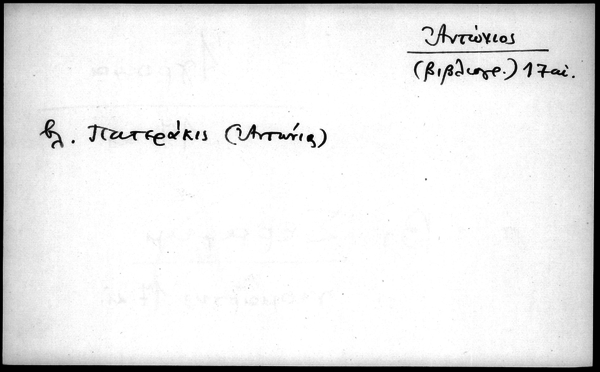 Ἀντώνιος
(βιβλιογρ.) 17 αἰ.
βλ. Πατεράκις (Ἀντώνιος)